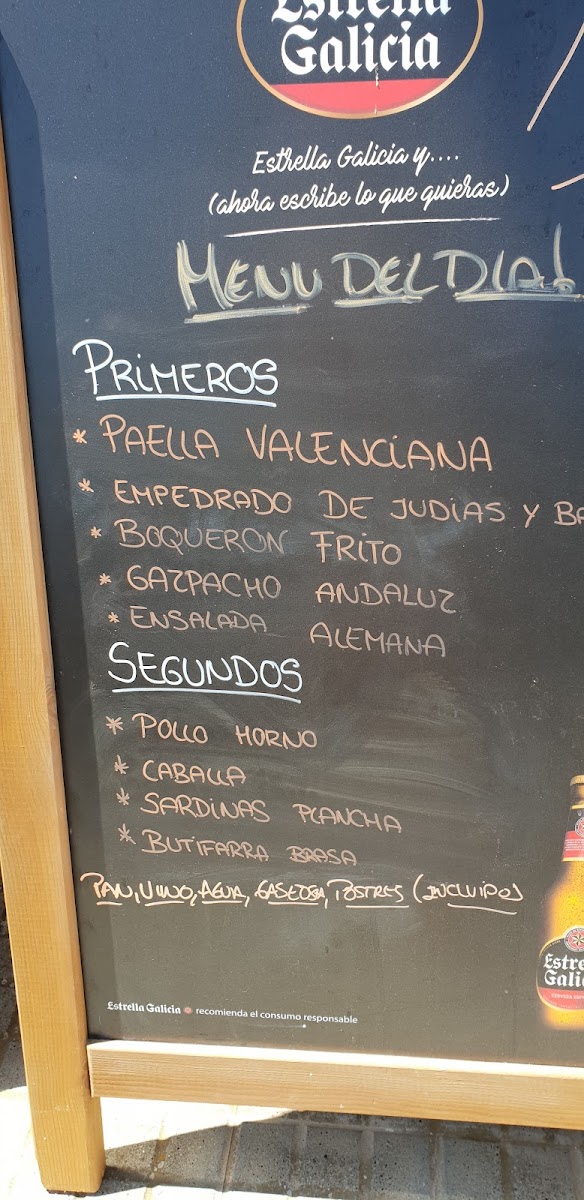 Estrella
Galicia
Estrella Galicia y....
(ahora escribe lo que quieras)
MENU DEL DIA!
PRIMEROS
* PAELLA VALENCIANA
* EMPEDRADO DE JUDIAS Y BA
* BOQUERON FRITO
* GAZPACHO ANDALUZ
* ENSALADA ALEMANA
SEGUNDOS
* POLLO HORNO
* CABALLA
* SARDINAS PLANCHA
* BUTIFARRA BRASA
PAN, VINO, AGUA, GASEOSA, POSTRES (INCLUIDO)
Estre
Galic
Estrella Galicia recomienda el consumo responsable